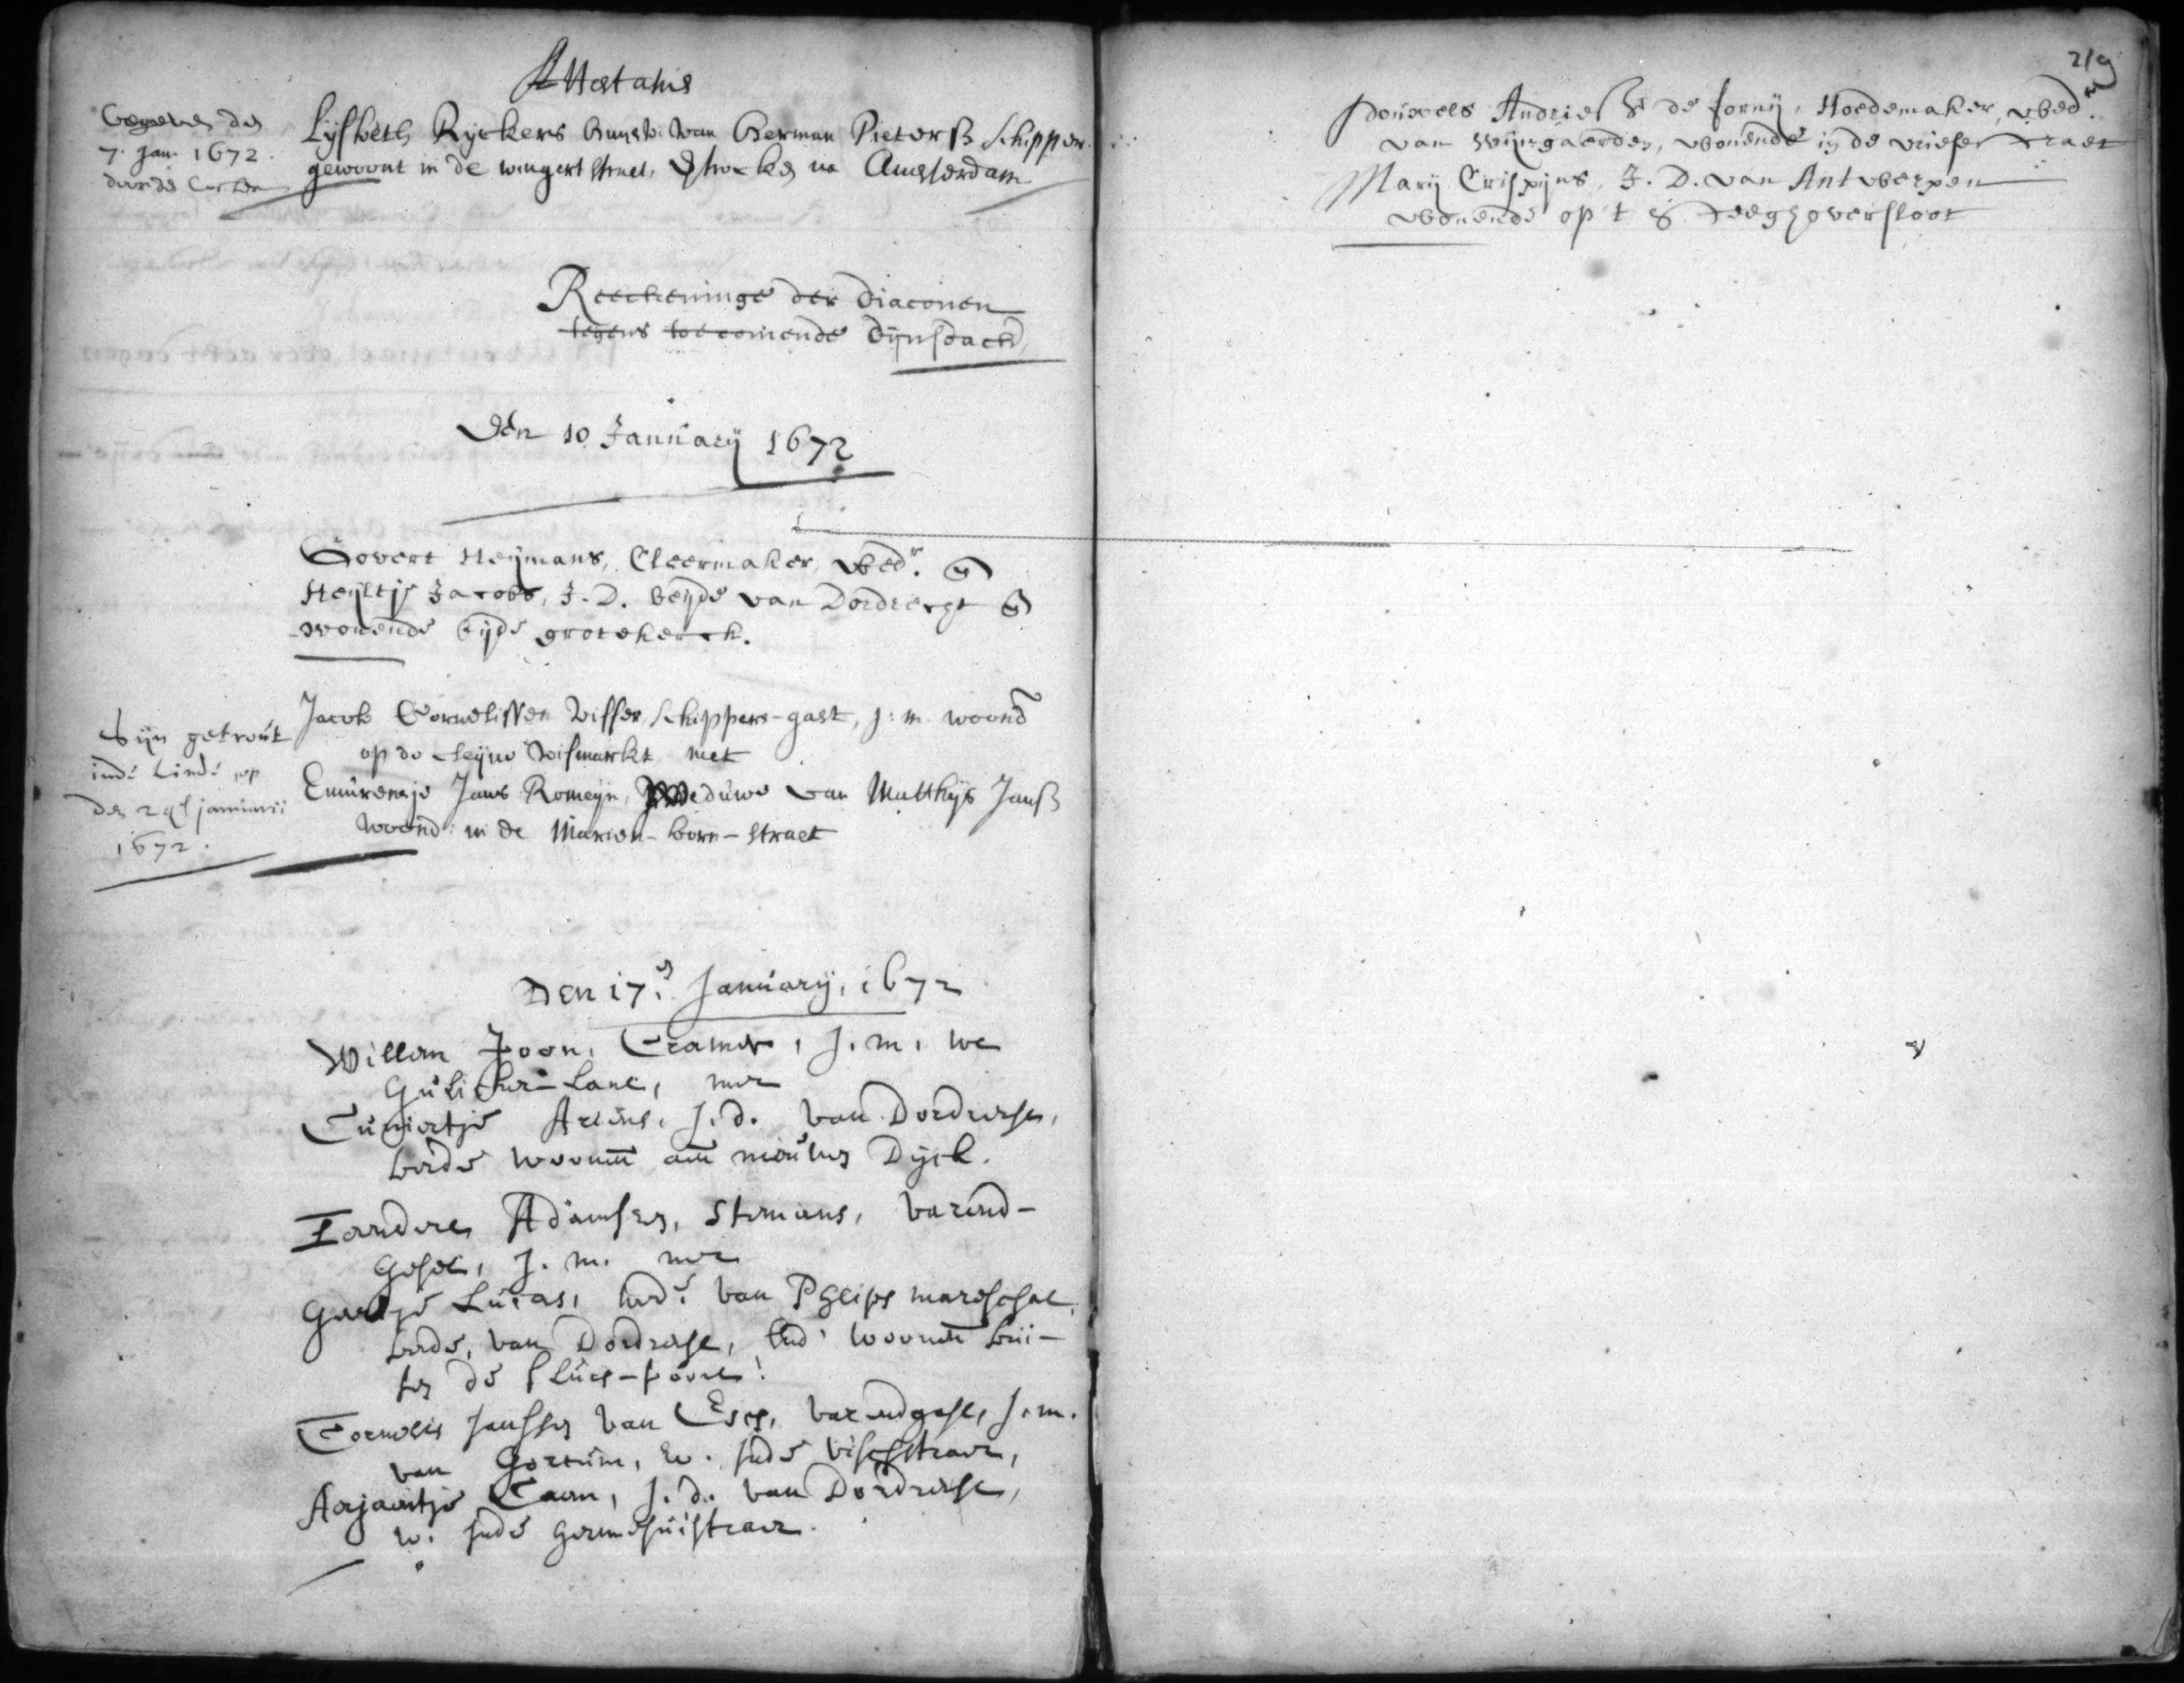 Attestatie
Gegeven den
7. Jan. 1672.
Lijsbeth Ryckers huysv. van Herman Pieterß Schipper
gewoont in de wingert straet, vertrocken na Amsterdam
Reeckeninge der Diaconen
tegens toecomende Dijnsdach
Den 10 Januarij 1672
Govert Heijmans, Cleermaker, wedr. en
Heijltje Jacobs, J.D. beijde van Dordrecht en
wonende bijde grotekerck.
Sijn getrout
inde Linde op
den 29 januarii
1672.
Jacob Cornelissen Visser, Schippers-gast, j: m. woond
op de Vismarkt met
Jans Romeijn, Weduwe van Matthijs Janß
woond: in de Marien-born-straet
Den 17en January, 1672
Willem Joon, Cramer, J. m. uyt
Gulicker-lant, met
Ariens, J. d. van Dordrecht,
beide woonen aen nieuwen Dijck.
Adamsen, Stimans, varend-
gesel, J. m. met
Geertje Lucas, wede. van Phlips Mareschal,
beide van Dordrecht, ende woonen bui-
ten de sluis-poort.
Cornelis Janssen van Esch, varendgesel, J. m.
van Gorcum, w. inde Vischstraet,
Ariaentje Caen, J. d. van Dordrecht,
w. inde
219
Pouwels Andriesß de Forny, Hoedemaker, wedr
van Wijngaerden, wonende in de vriese straet
Marij Crispijns, J. D. van Antwerpen
wonende op 't Steeghoversloot